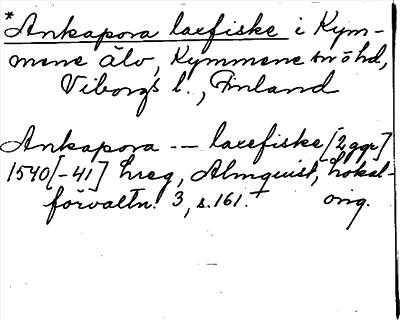 *Ankapora laxfiske i Kym-
mene älv, Kymmene sn o hd,
Viborgs l., Finland
Ankapora -- laxefiske [2 ggr]
1540[-41] hreg, Almquist, Lokal-
förvaltn. 3, s. 161. + orig.